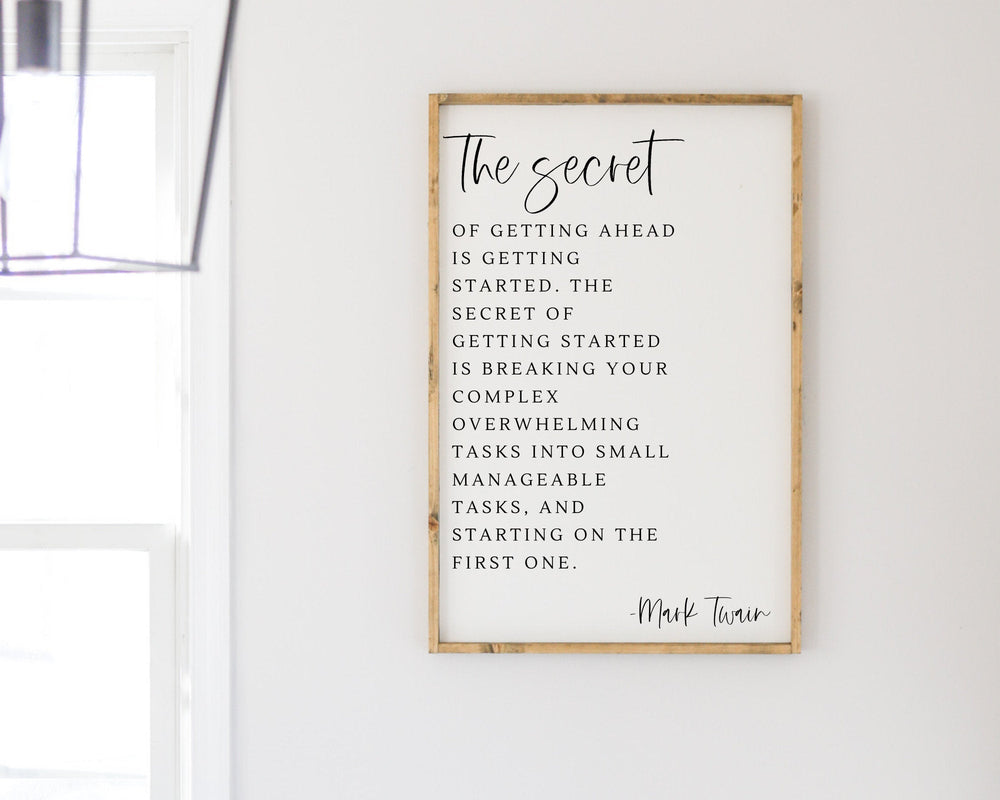 The secret
OF GETTING AHEAD
IS GETTING
STARTED. THE
SECRET OF
GETTING STARTED
IS BREAKING YOUR
COMPLEX
OVERWHELMING
TASKS INTO SMALL
MANAGEABLE
TASKS, AND
STARTING ON THE
FIRST ONE.
-Mark Twain